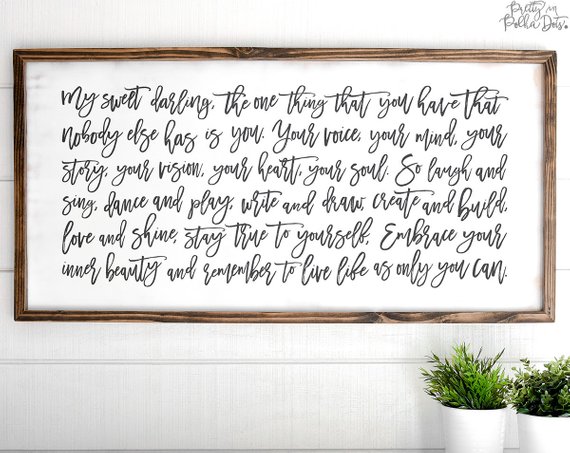 Pretty in
Polka Dots.
My sweet darling, the one thing that you have that
nobody else has is you. Your voice, your mind, your
story, your vision, your heart, your soul. So laugh and
sing, dance and play, write and draw, create and build,
love and shine, stay true to yourself. Embrace your
inner beauty and remember to live life as only you can.